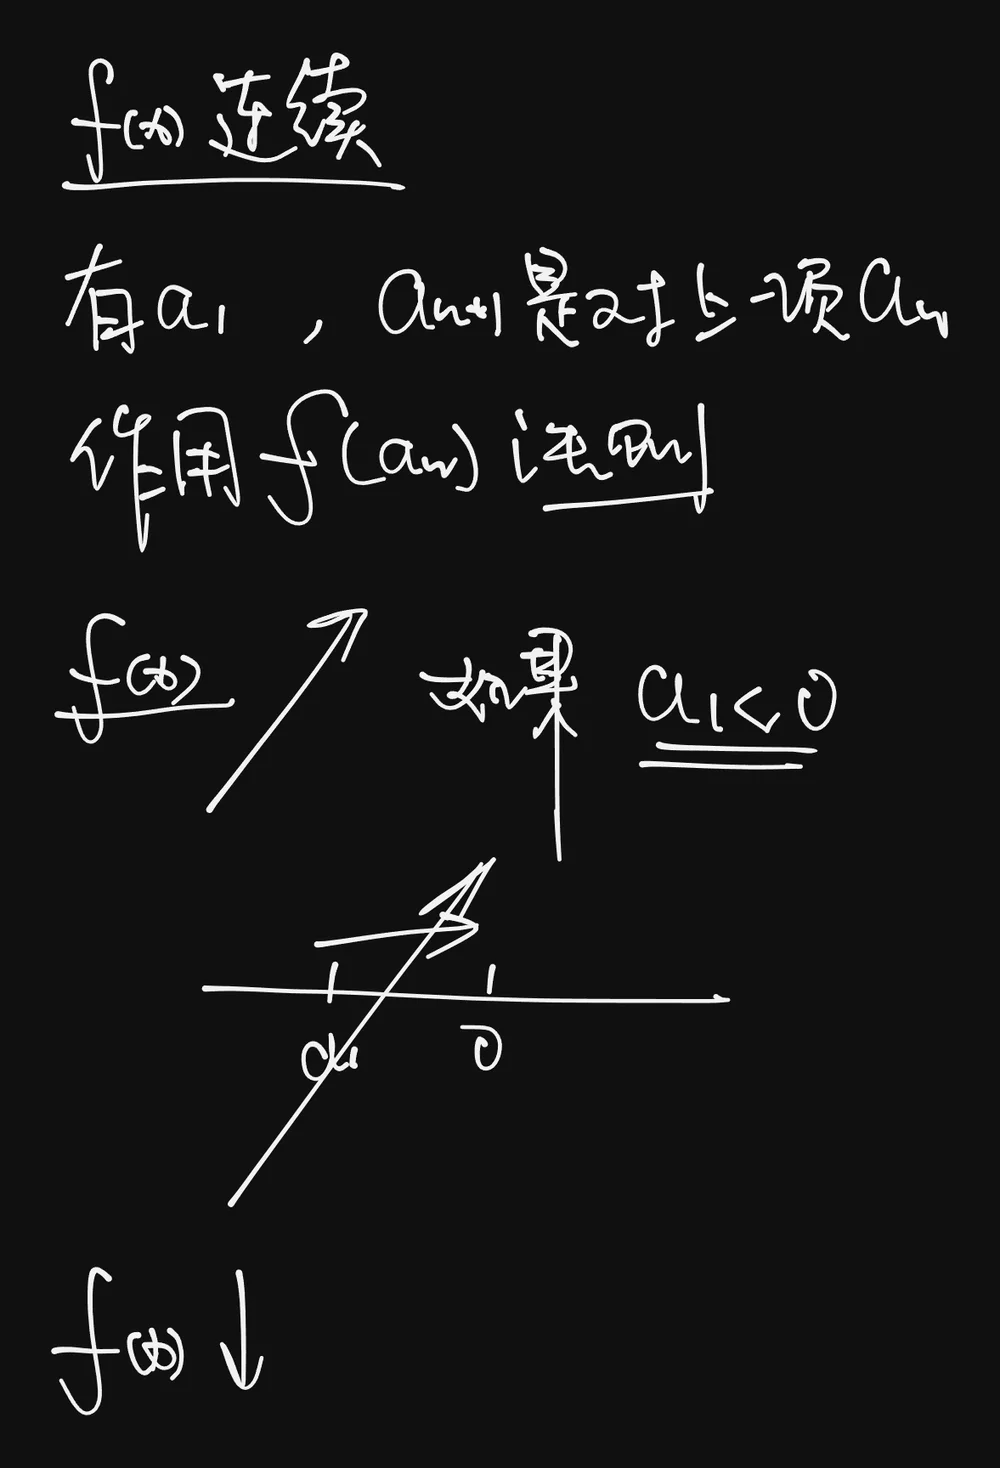 f(x)连续
有a₁，aₙ₊₁是对上一项aₙ
作用f(aₙ)法则
f(x) 如果 a₁<0
a₁ 0
f(x)↓